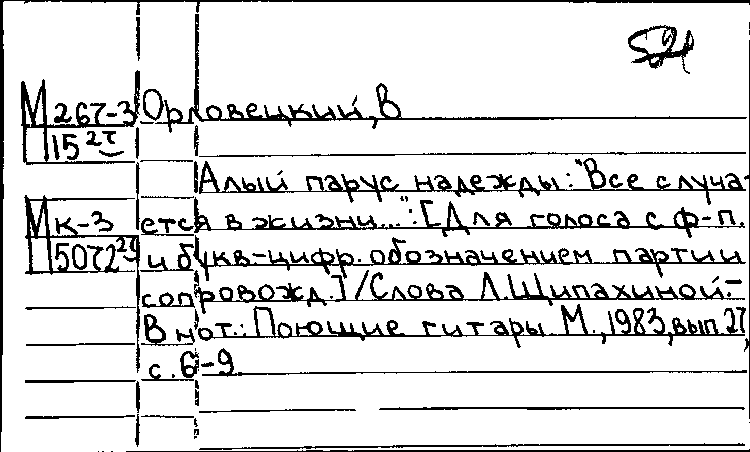 521
М 267-3 Орловецкий, В
15 27
Алый парус надежды: "Все случа-
М к-3 ется в жизни...": [Для голоса с ф-п.
50722 29 и букв-цифр. обозначением партии
сопровожд.] / Слова Л. Щипахиной.-
В нот.: Поющие гитары М., 1983, вып. 27,
с. 6-9.